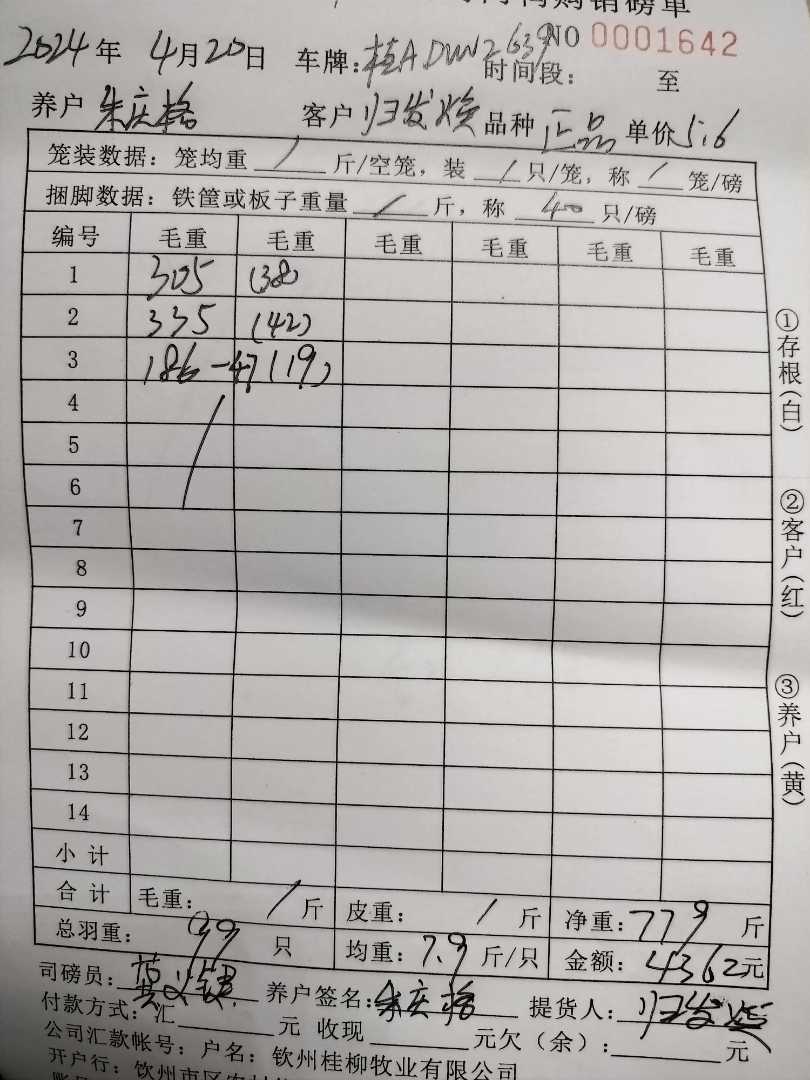 购销磅单
2024年 4月20日 车牌:桂ADW2639 NO 0001642
时间段: 至
养户 朱庆格 客户 归发焕 品种 正品 单价5.6
笼装数据: 笼均重 / 斤/空笼, 装 / 只/笼, 称 / 笼/磅
捆脚数据: 铁筐或板子重量 / 斤, 称 40 只/磅
编号 毛重 毛重 毛重 毛重 毛重 毛重
1 305 (38)
2 335 (42)
3 186-47 (19)
4
5
6
7
8
9
10
11
12
13
14
小计
合计 毛重: / 斤 皮重: / 斤 净重:779 斤
总羽重: 99 只 均重: 7.9 斤/只 金额: 4362元
司磅员: 养户签名:朱庆格 提货人: 归发焕
付款方式: 汇 元 收现 元欠(余): 元
公司汇款帐号: 户名: 钦州桂柳牧业有限公司
开户行: 钦州市区农村
①存根(白)
②客户(红)
③养户(黄)